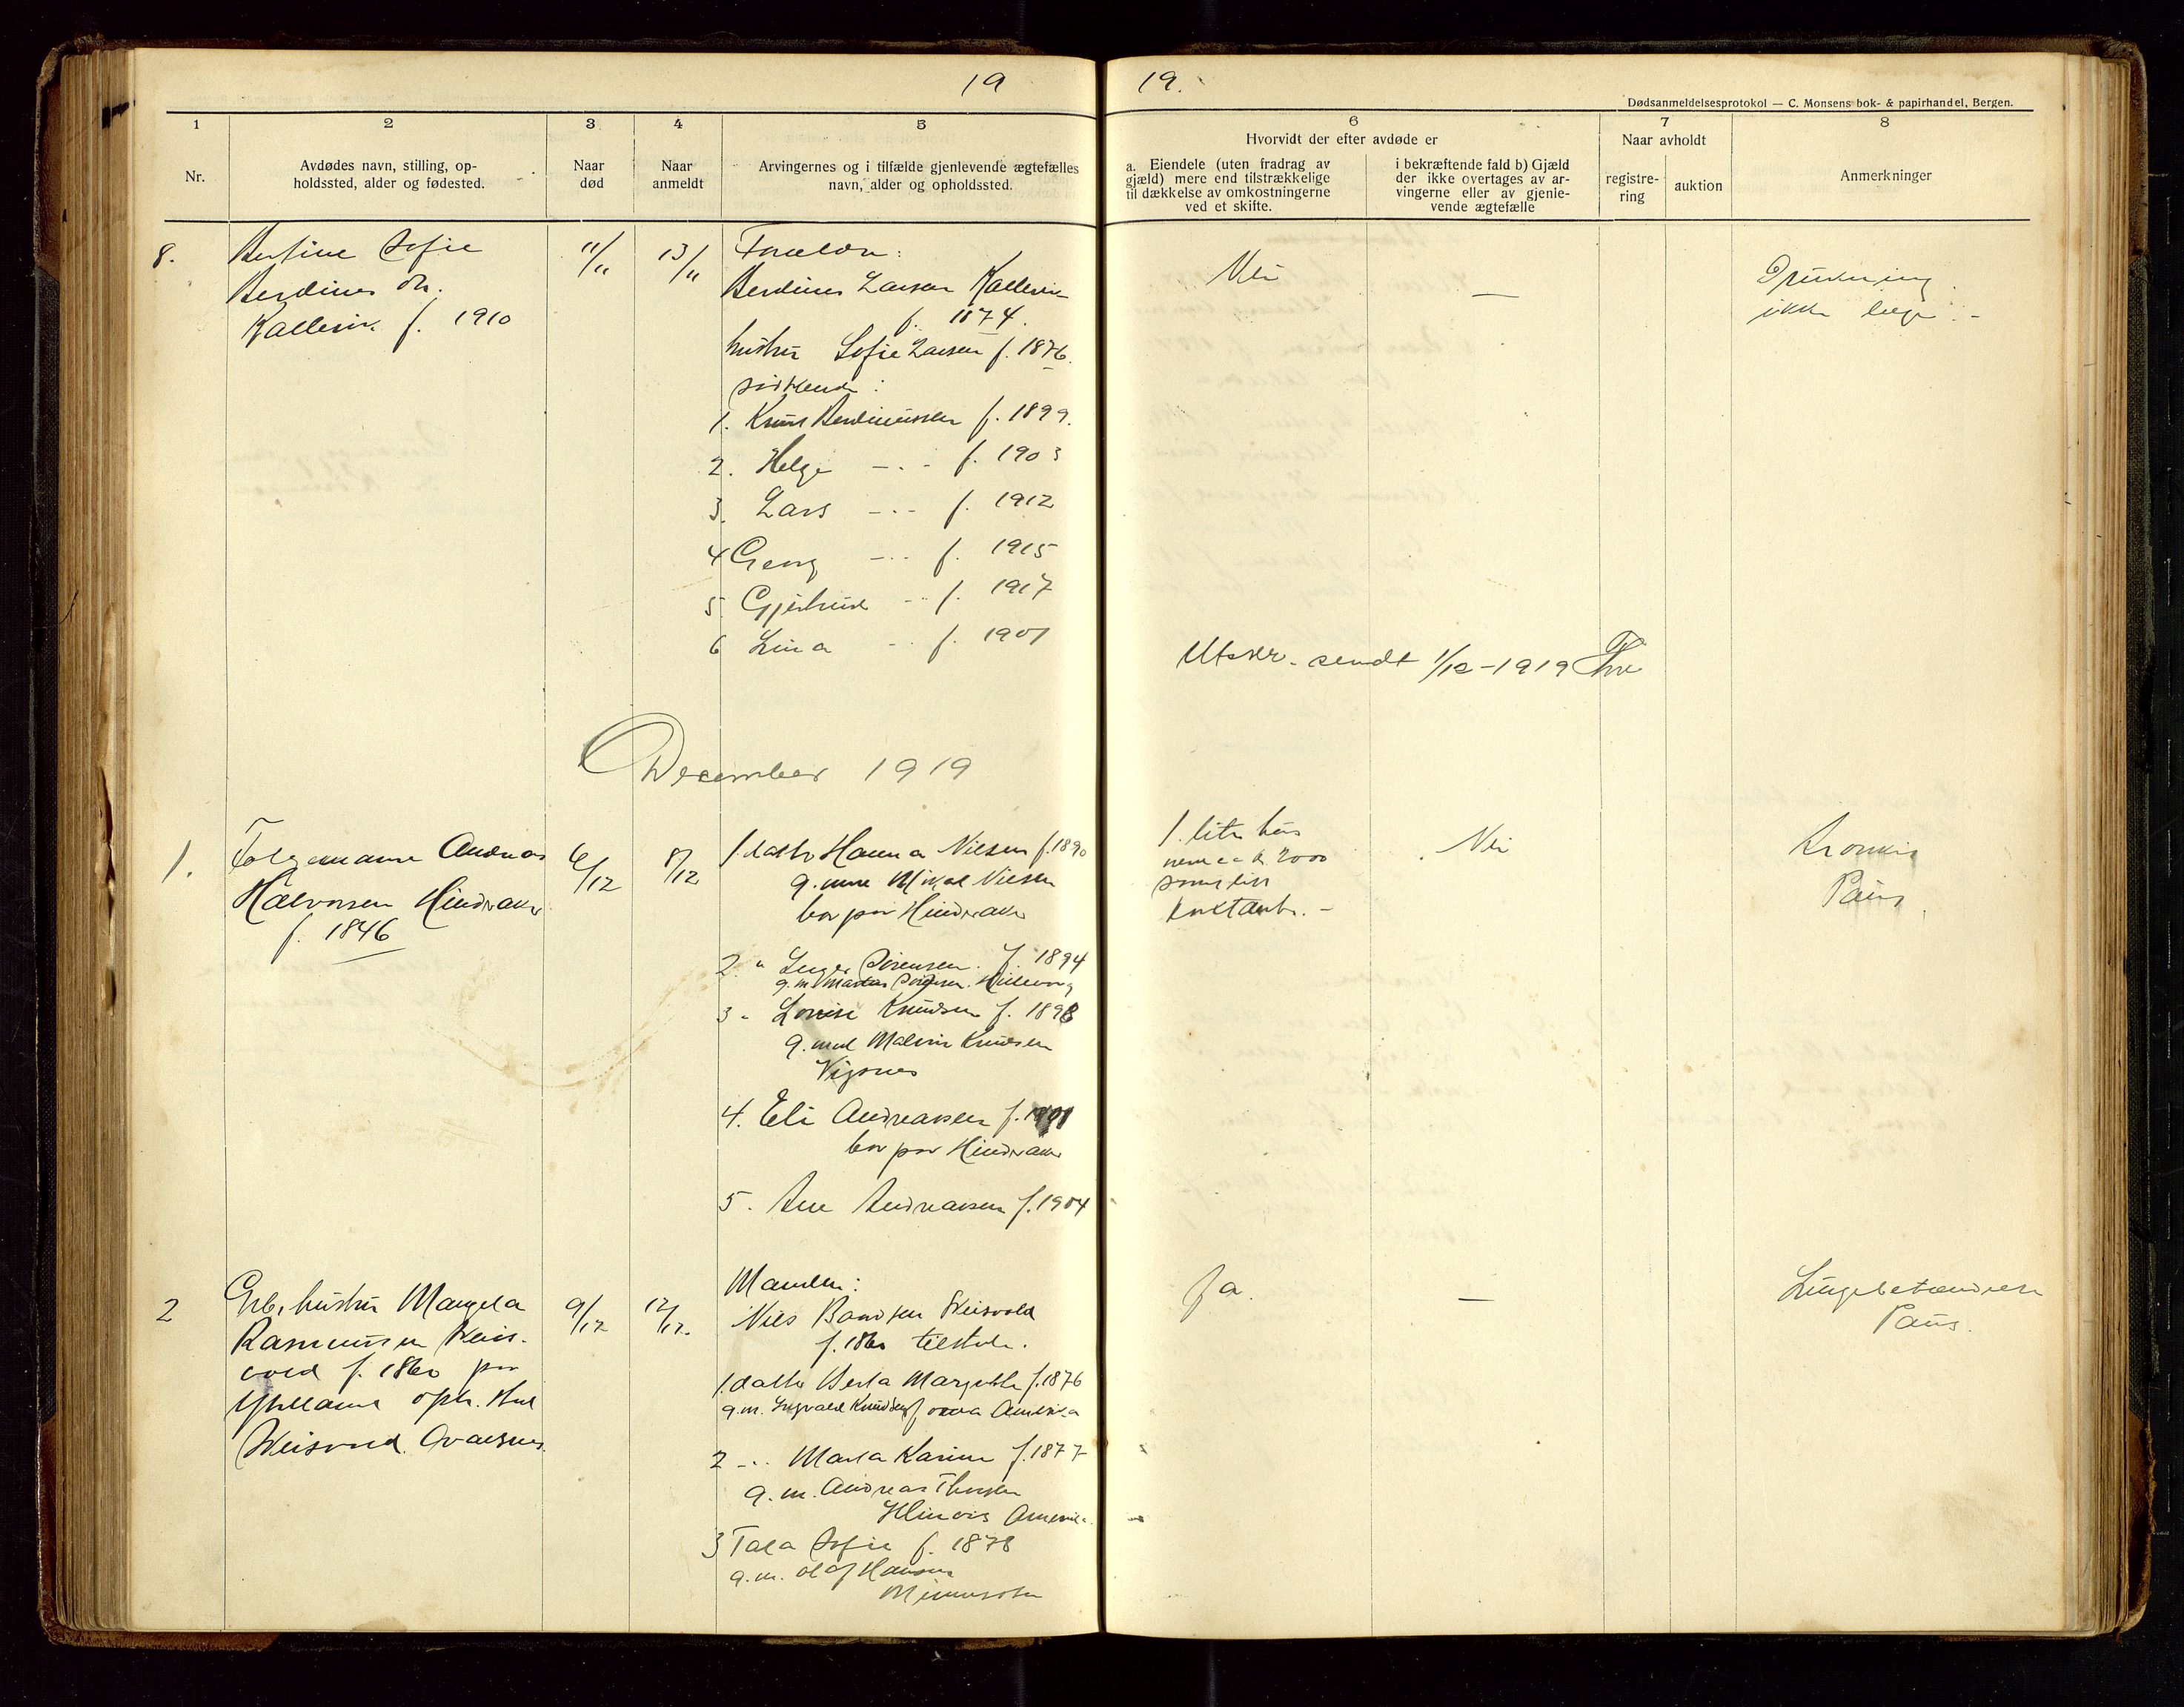 19
19.
Dødsanmeldelsesprotokol — C. Monsens bok- & papirhandel, Bergen.
1
2
3
4
5
6
7
8
Nr.
Avdødes navn, stilling, op-
holdssted, alder og fødested.
Naar
død
Naar
anmeldt
Arvingernes og i tilfælde gjenlevende ægtefælles
navn, alder og opholdssted.
Hvorvidt der efter avdøde er
a. Eiendele (uten fradrag av
gjæld) mere end tilstrækkelige
til dækkelse av omkostningerne
ved et skifte.
i bekræftende fald b) Gjæld
der ikke overtages av ar-
vingerne eller av gjenle-
vende ægtefælle
Naar avholdt
registre-
ring
auktion
Anmerkninger
8.
Bertine Sofie
Berdines dtr.
Kallevik f. 1910
11/11
13/11
Forældre:
Berdines Larsen Kallevik
f. 1874.
hustru Sofie Larsen f. 1876.
søskende:
1. Knut Berdinussen f. 1899.
2. Helge -..- f. 1903
3. Lars -..- f. 1912
4 Georg -..- f. 1915
5 Gjertrud -..- f. 1917
6 Lina -..- f. 1901
Nei
—
Drukning
ikke læge. -
Utskr. sendt 1/12-1919
December 1919
1.
Folgemann Andreas
Halvorsen Hinderaker
f. 1846
6/12
8/12
1. datter Hanna Nilsen f. 1890
g. med Mikal Nilsen
bor paa Hinderaker
2. " Inger Sørensen f. 1894
g. m. Markus Sørensen.
3 " Lovise Knudsen f. 1898
g. med Malvin Knudsen
Vigsnes
4. Eli Andreassen f. 1901
bor paa Hinderaker
5. Ane Andreassen f. 1904
1. lite hus
2000
kontanter. -
Nei
Kronkis
Paus
2
Gbr. hustru Margela
Rasmussen Kvis-
vold f. 1860 paa
oph. sted
Avaldsnes.
9/12
12/12.
Manden:
Nils
f. 1860 tilstede.
1. datter Berta Margrethe f. 1876
g. m. Ingvald Knudsen Iowa Amerika
2 -.. Marta Karine f. 1877
g. m. Andreas Thorsen
Illinois Amerika
3 Tala Sofie f. 1878
g. m. Olaf Hansen
Minnesota
Ja.
—
Lungebetændelse
Paus.